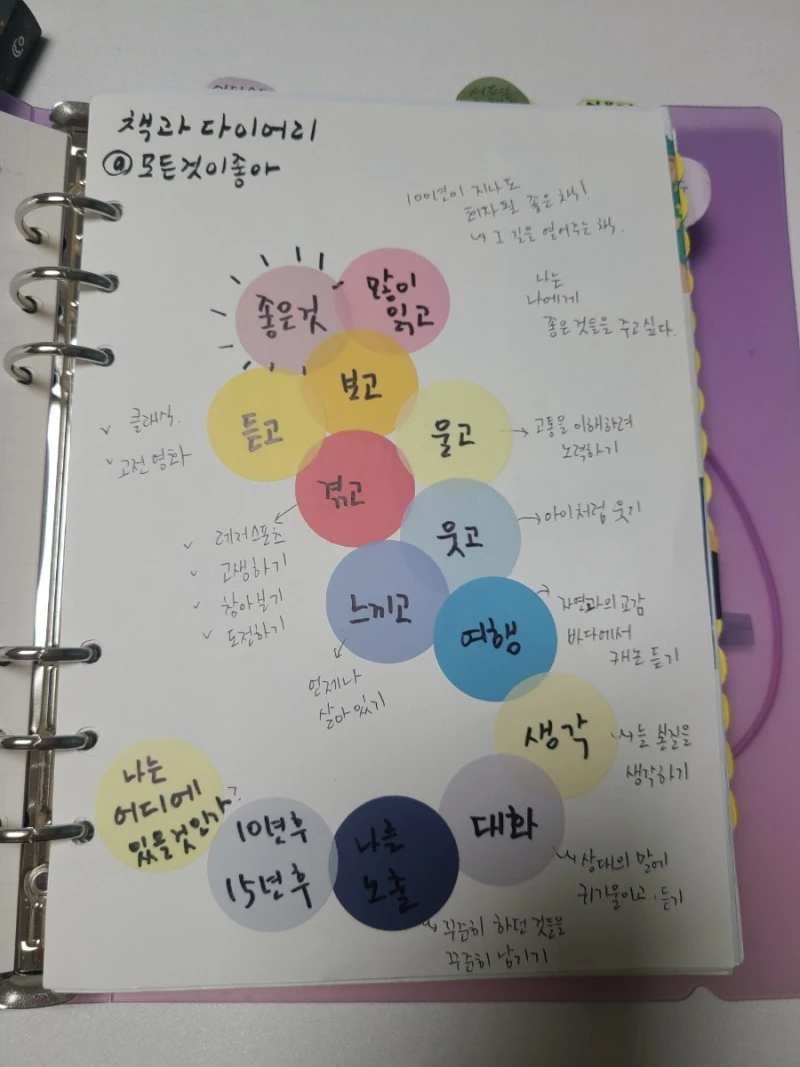 책과 다이어리
@모든것이좋아
100년이 지나도
회자될 좋은 책!
내 그 길을 열어주는 책.
나는
나에게
좋은것들을 주고싶다.
좋은것
많이
읽고
보고
듣고
클래식.
고전 영화
울고
고통을 이해하려
노력하기
겪고
레저스포츠
고생하기
찾아보기
도전하기
웃고
아이처럼 웃기
느끼고
언제나
살아있기
여행
자연과의 교감
바다에서
캐논 듣기
생각
늘 본질을
생각하기
대화
상대의 말에
귀기울이고 듣기
나를
노출
꾸준히 하던 것들을
꾸준히 남기기
10년후
15년후
나는
어디에
있을것인가?